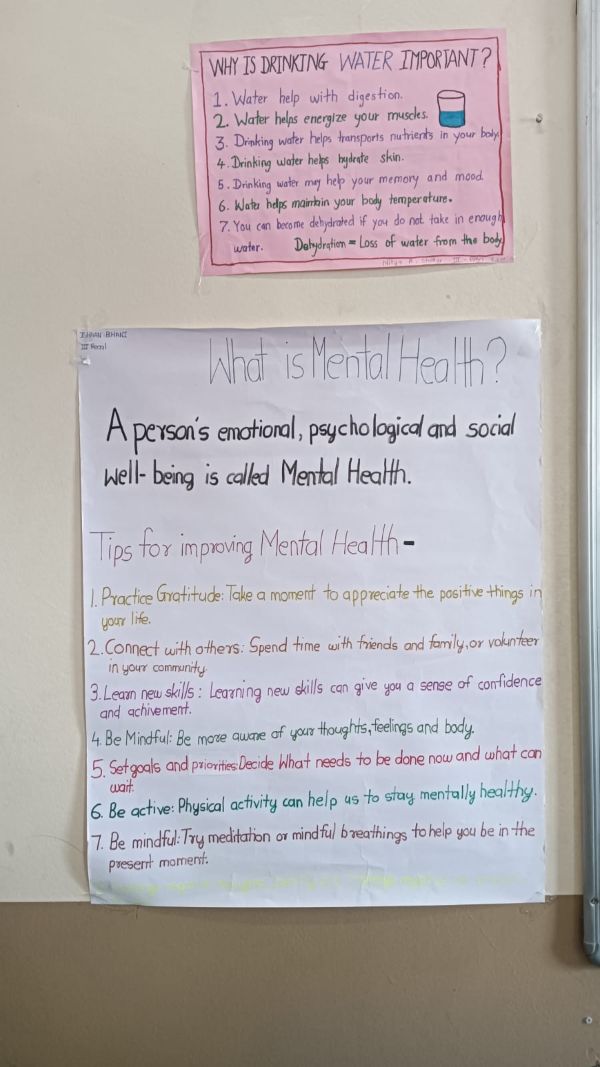 WHY IS DRINKING WATER IMPORTANT?
1. Water help with digestion.
2. Water helps energize your muscles.
3. Drinking water helps transports nutrients in your body.
4. Drinking water helps hydrate skin.
5. Drinking water may help your memory and mood.
6. Water helps maintain your body temperature.
7. You can become dehydrated if you do not take in enough
water. Dehydration = Loss of water from the body
III
What is Mental Health?
A person's emotional, psychological and social
well-being is called Mental Health.
Tips for improving Mental Health-
1. Practice Gratitude: Take a moment to appreciate the positive things in
your life.
2. Connect with others: Spend time with friends and family, or volunteer
in your community.
3. Learn new skills: Learning new skills can give you a sense of confidence
and achivement.
4. Be Mindful: Be more aware of your thoughts, feelings and body.
5. Set goals and priorities: Decide What needs to be done now and what can
wait.
6. Be active: Physical activity can help us to stay mentally healthy.
7. Be mindful: Try meditation or mindful breathings to help you be in the
present moment.